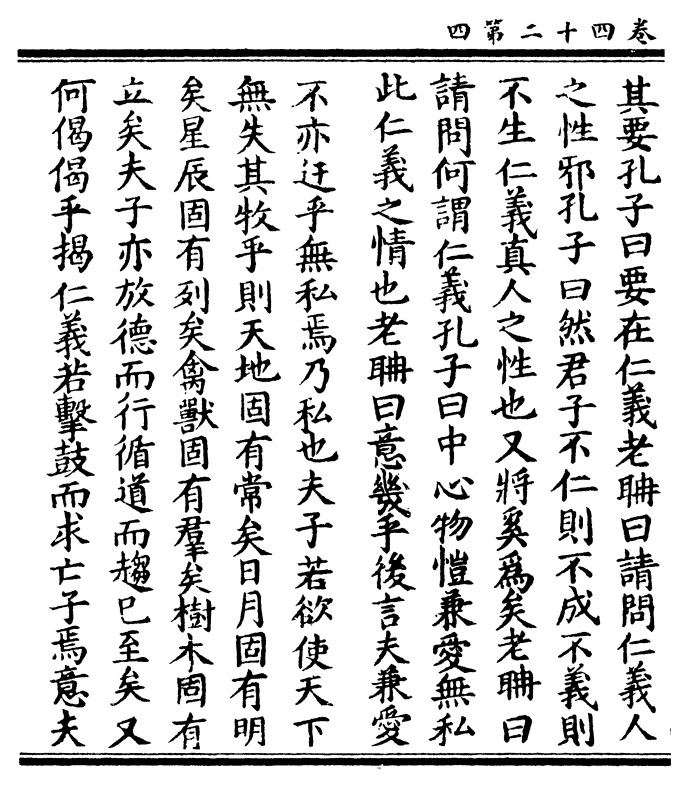 卷四十二第四
其要孔子曰要在仁義老聃曰請問仁義人
之性邪孔子曰然君子不仁則不成不義則
不生仁義真人之性也又將奚爲矣老聃曰
請問何謂仁義孔子曰中心物愷兼愛無私
此仁義之情也老聃曰意幾乎後言夫兼愛
不亦迂乎無私焉乃私也夫子若欲使天下
無失其牧乎則天地固有常矣日月固有明
矣星辰固有列矣禽獸固有羣矣樹木固有
立矣夫子亦放德而行循道而趨已至矣又
何偈偈乎揭仁義若擊鼓而求亡子焉意夫